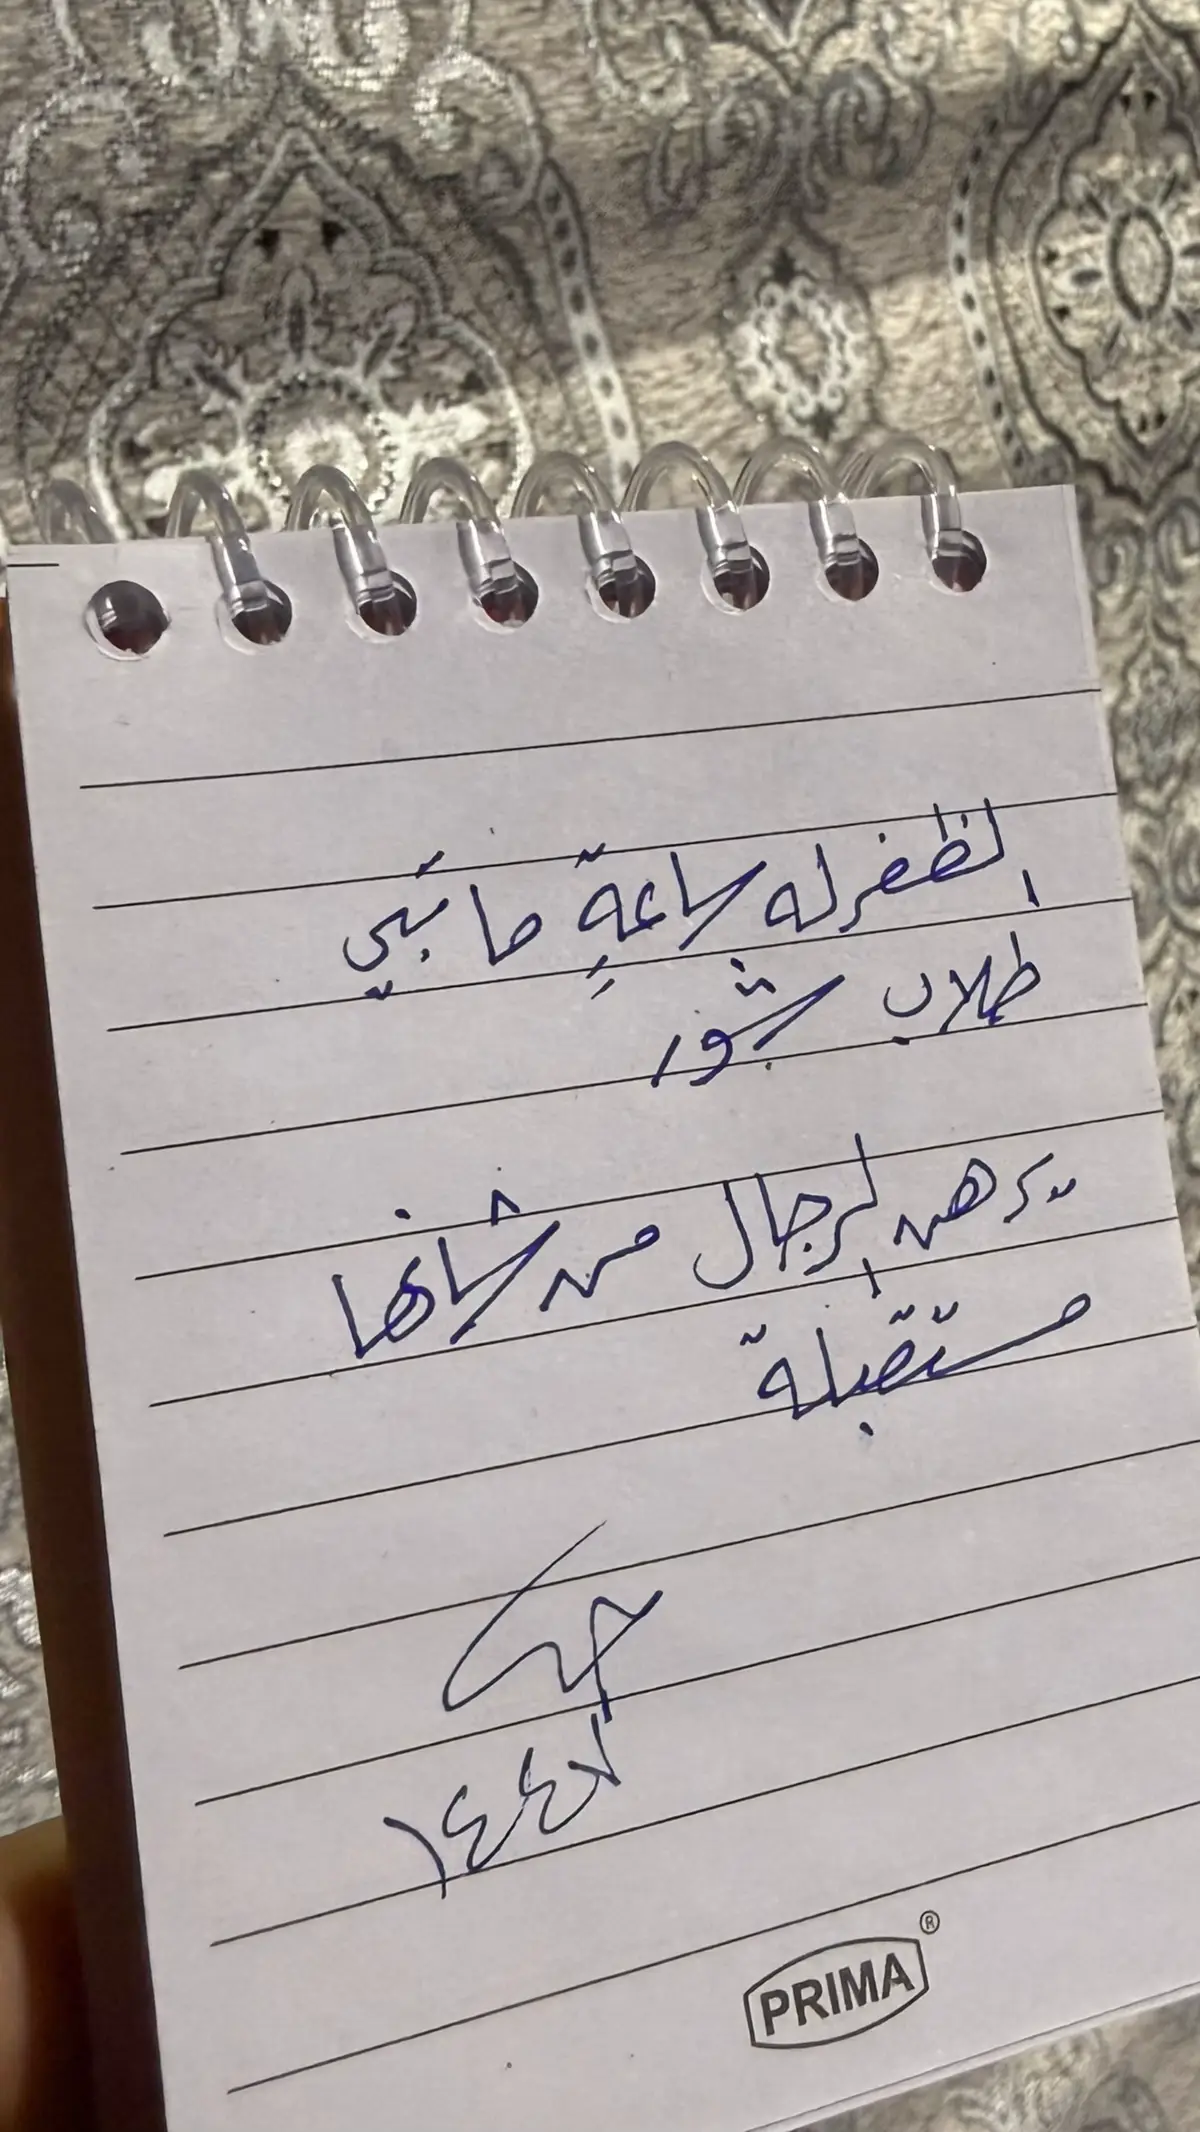 الظفر له ساعةٍ ما تبي
طلاب شور
يرهن الرجال من شانها
مستقبلة
١٤٤٧
PRIMA®